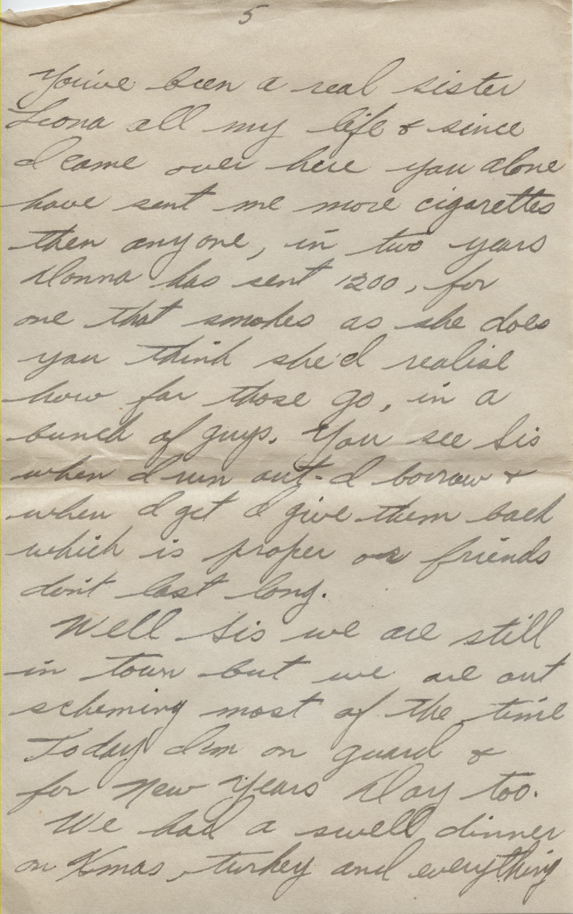 5
You've been a real sister
Leona all my life & since
I came over here you alone
have sent me more cigarettes
then anyone, in two years
Donna has sent 1200, for
one that smokes as she does
you think she'd realise
how far those go, in a
bunch of guys. You see Sis
when I run out - I borrow &
when I get I give them back
which is proper or friends
don't last long.
Well Sis we are still
in town but we are out
scheming most of the time
Today I'm on guard &
for New Years Day too.
We had a swell dinner
on Xmas, turkey and everything